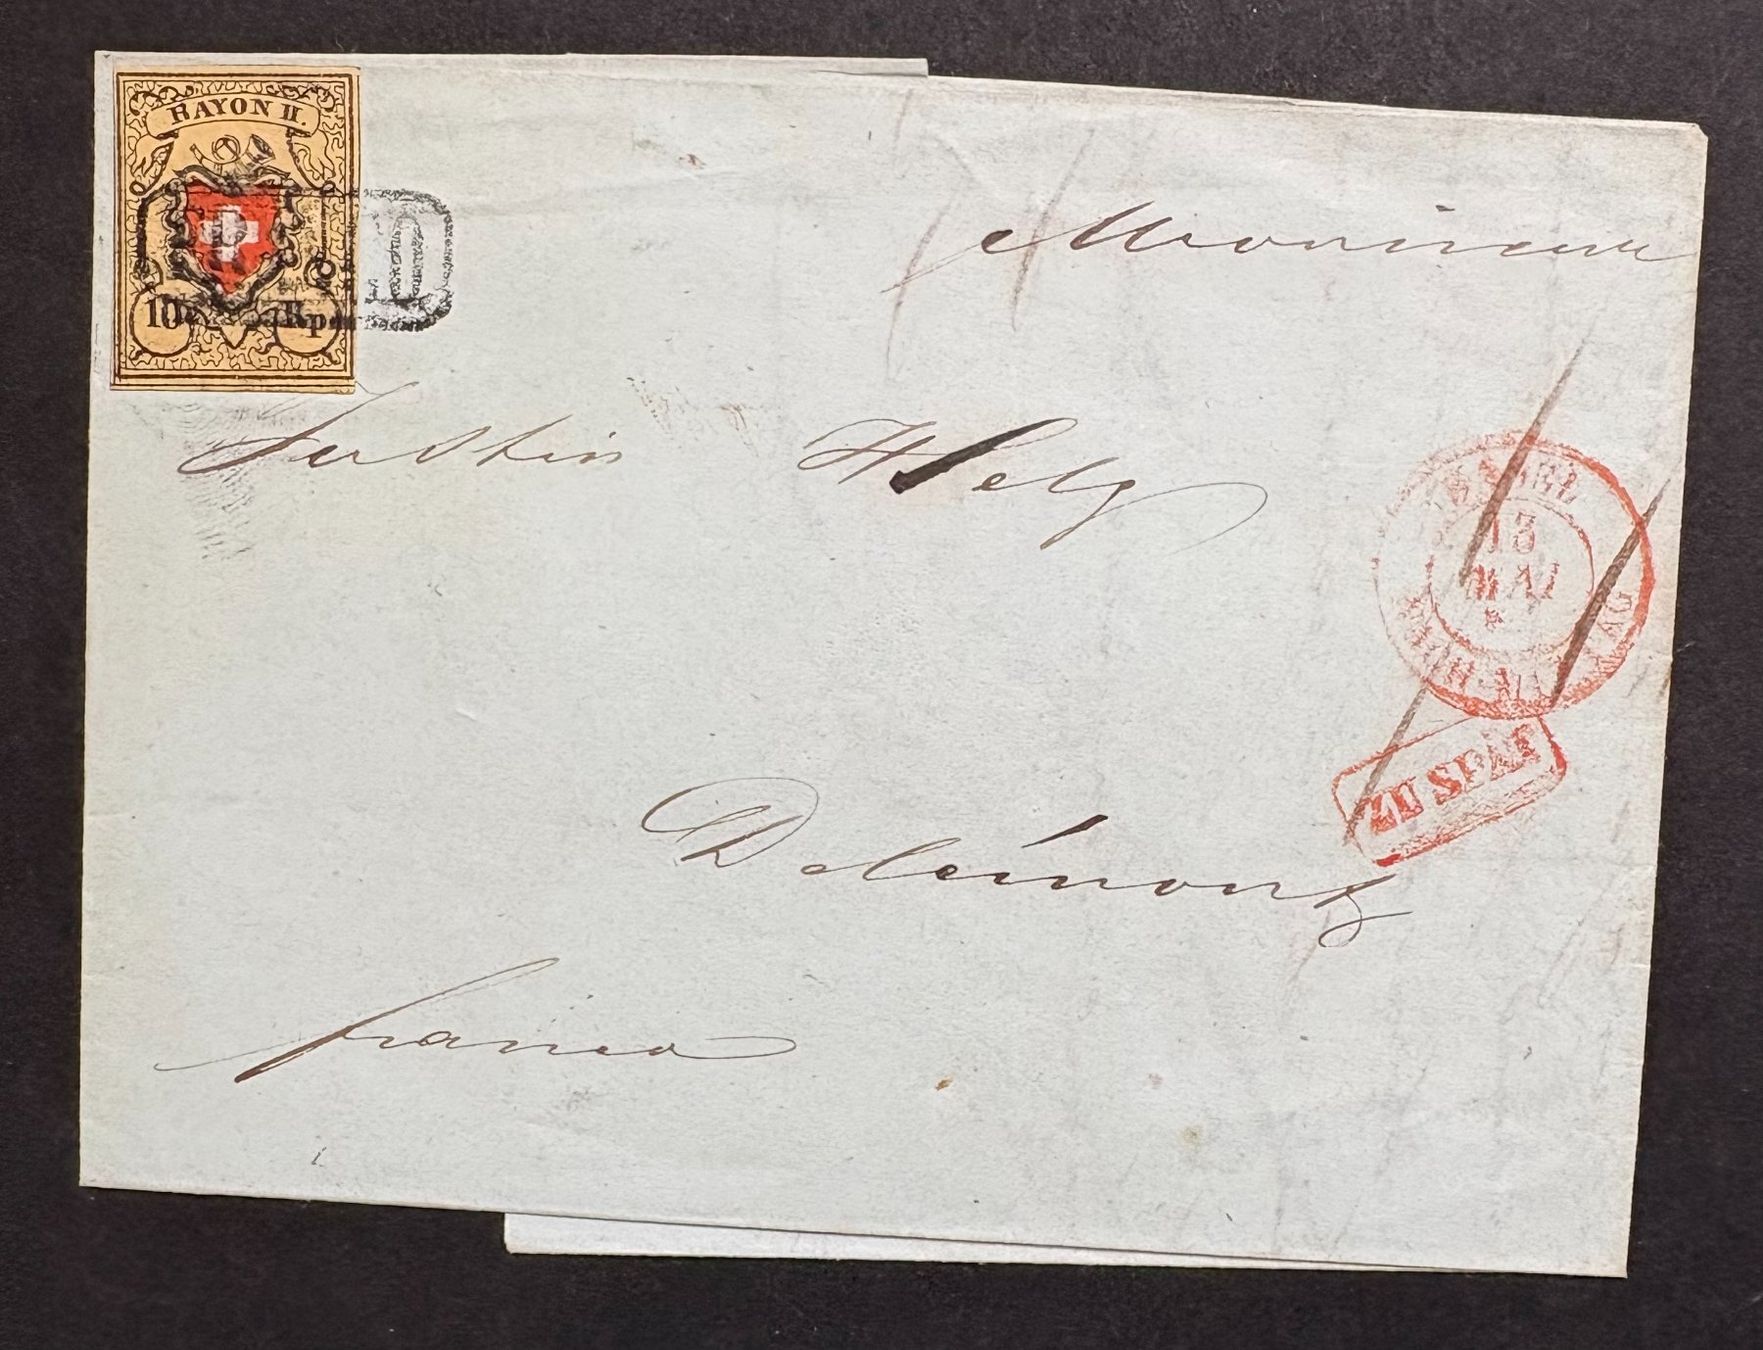 RAYON II.
10 Rp.
P.D
Monsieur
Justin Helg
Delémont
franco
BASEL
13
MAI
NACH-MITTAG
ZU SPÄT